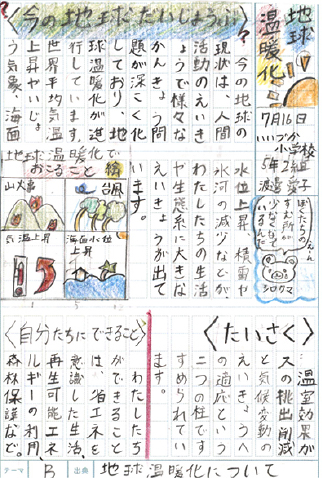 地球
温暖化
7月16日
いいづか
小学校
5年2組
渡邉愛子
ぼくたちの
すむ所が
少なくなって
いるんだ
シロクマ
？〈今の地球だいじょうぶ〉？
今の地球の
現状は、人間
活動のえいき
ょうで様々な
かんきょう問
題が深こく化
しており、地
球温暖化が進
行しています。
世界平均気温
上昇やいじょ
う気象、海面
水位上昇、積雪や
氷河の減少などが、
わたしたちの生活
や生態系に大きな
えいきょうが出て
います。
地球温暖化で
おこること
山火事
台風
気温上昇
海面水位
上昇
〈たいさく〉
温室効果が
スの排出削減
と気候変動の
えいきょうへ
の適応という
二つの柱です
すめられてい
ます。
〈自分たちにできること〉
わたしたち
ができること
は、省エネを
意識した生活、
再生可能エネ
ルギーの利用、
森林保護など。
テーマ
B
出典
地球温暖化について